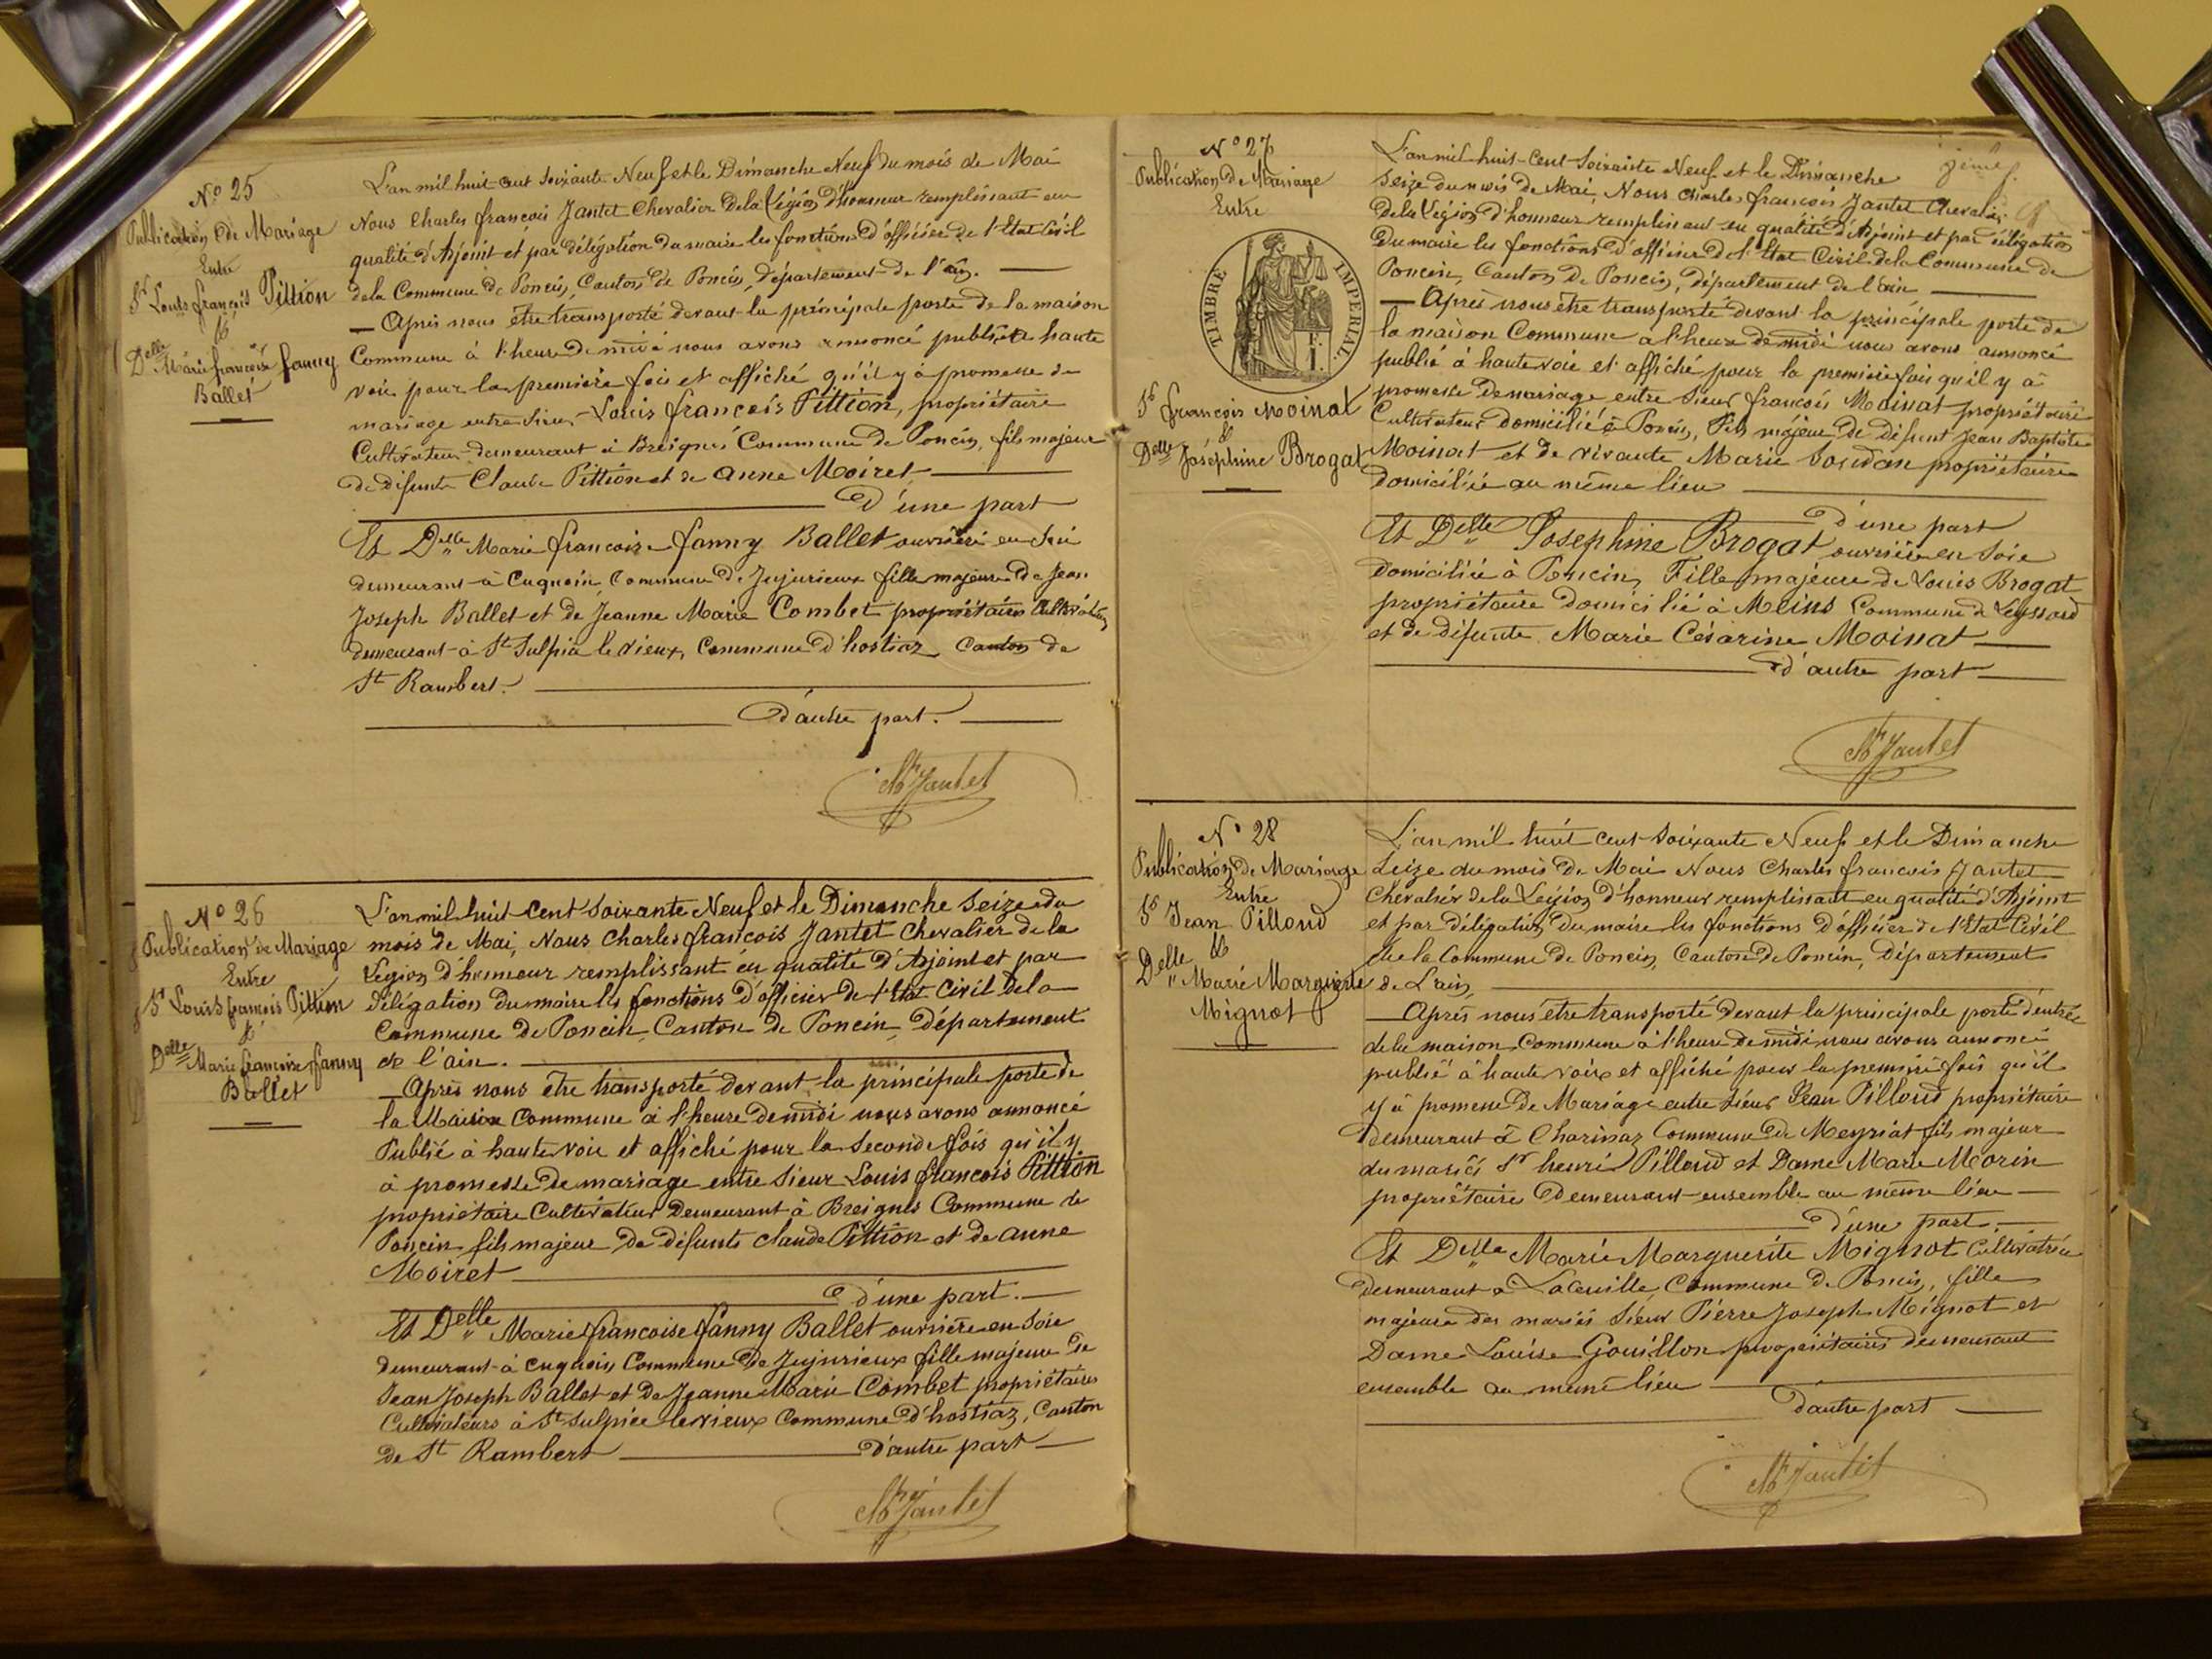 N° 25
Publication de Mariage
Entre
Sr Louis françois Pittion
&
Delle Marie francoise fanny
Ballet
L'an mil huit cent soixante Neuf et le Dimanche Neuf du mois de Mai
Nous Charles francois Jantet Chevalier De la Légion d'honneur remplissant en
qualité d'Adjoint et par délégation du maire les fonctions d'officier de l'Etat Civil
de la Commune de Poncin, Canton de Poncin, département de l'ain.
Après nous être transporté devant la principale porte de la maison
Commune à l'heure de midi nous avons annoncé publié à haute
voie pour la premiere fois et affiché qu'il y à promesse de
mariage entre Sieur Louis francois Pittion, propriétaire
Cultivateur demeurant à Breignes Commune de Poncin, fils majeur
de défunts Claude Pittion et de anne Moiret
D'une part
Et Delle Marie francoise fanny Ballet ouvrière en soie
demeurant à Cuquoin Commune de Jujurieux fille majeure de Jean
Joseph Ballet et de Jeanne Marie Combet propriétaires Cultivateurs
demeurant à St Sulpice le vieux, Commune d'hostiaz Canton de
St Rambert.
D'autre part.
Ch Jantet
N° 26
Publication de Mariage
Entre
Sr Louis francois Pittion
&
Delle Marie francoise fanny
Ballet
L'an mil huit cent soixante Neuf et le Dimanche Seize du
mois de Mai, Nous Charles francois Jantet Chevalier de la
Légion d'honneur remplissant en qualité d'Adjoint et par
délégation du maire les fonctions d'officier de l'Etat Civil de la
Commune de Poncin Canton de Poncin, Département
de l'ain.
Après nous être transporté devant la principale porte de
la Maison Commune à l'heure de midi nous avons annoncé
Publié à haute voie et affiché pour la seconde fois qu'il y
à promesse de mariage entre Sieur Louis francois Pittion
propriétaire Cultivateur Demeurant à Breignes Commune de
Poncin fils majeur de défunts Claude Pittion et de anne
Moiret
D'une part.
Et Delle Marie francoise fanny Ballet ouvrière en soie
demeurant à Cuquoin Commune de Jujurieux fille majeure de
Jean Joseph Ballet et de Jeanne Marie Combet propriétaires
Cultivateurs à St Sulpice le vieux Commune d'hostiaz, Canton
de St Rambert D'autre part
Ch Jantet
N° 27
Publication de Mariage
Entre
TIMBRE IMPERIAL
Sr francois Moinat
&
Delle Joséphine Brogat
L'an mil huit-cent-soixante Neuf et le Dimanche
Seize du mois de Mai, Nous Charles francois Jantet Chevalier
De la Légion d'honneur remplissant en qualité d'Adjoint et par délégation
Du maire les fonctions d'officier de l'Etat Civil de la Commune de
Poncin, Canton de Poncin, département de l'ain
Après nous être transporté devant la principale porte de
la maison Commune à l'heure de midi nous avons annoncé
publié à haute voie et affiché pour la premiere fois qu'il y à
promesse de mariage entre Sieur francois Moinat propriétaire
Cultivateur domicilié à Poncin, Fils majeur de défunt Jean Baptiste
Moinat et de vivante Marie propriétaire
domiciliée au même lieu
D'une part
Et Delle Josephine Brogat ouvrière en Soie
domiciliée à Poncin, Fille majeure de Louis Brogat
propriétaire domicilié à Meins Commune de Leyssard
et de défunte Marie Césarine Moinat
D'autre part
Ch Jantet
N° 28
Publication de Mariage
Entre
Sr Jean Pilloud
&
Delle Marie Marguerite
Mignot
L'an mil huit cent soixante Neuf et le Dimanche
Seize du mois de Mai Nous Charles francois Jantet
Chevalier de la Légion d'honneur remplissant en qualité d'Adjoint
et par délégation du maire les fonctions d'officier de l'Etat Civil
de la Commune de Poncin, Canton de Poncin, Département
de L'ain,
Après nous être transporté devant la principale porte d'entrée
de la maison Commune à l'heure de midi nous avons annoncé
publié à haute voix et affiché pour la premiere fois qu'il
y à promesse de Mariage entre Sieur Jean Pilloud propriétaire
demeurant à Charinaz Commune de Meyriat fils majeur
du mariés Sr henri Pilloud et Dame Marie Morin
propriétaires Demeurant ensemble au même lieu
D'une part.
Et Delle Marie Marguerite Mignot Cultivatrice
demeurant à Lacuille, Commune de Poncin, fille
majeure des mariés Sieur Pierre Joseph Mignot et
Dame Louise Gouillon propriétaires demeurant
ensemble au même lieu
D'autre part
Ch Jantet